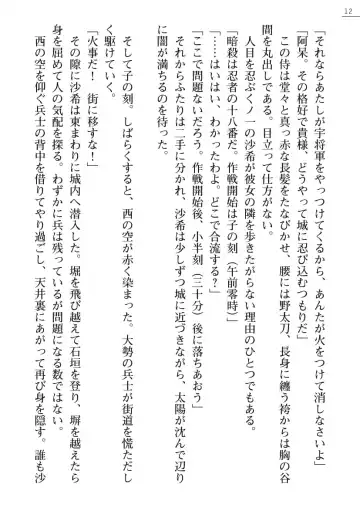 12
「それならあたしが宇将軍をやっつけてくるから、あんたが火をつけて消しなさいよ」
「阿呆。その格好で貴様、どうやって城に忍び込むつもりだ」
この侍は堂々と真っ赤な長髪をたなびかせ、腰には野太刀、長身に纏う袴からは胸の谷
間を丸出しである。目立って仕方がない。
人目を忍ぶくノ一の沙希が彼女の隣を歩きたがらない理由のひとつでもある。
「暗殺は忍者の十八番だ。作戦開始は子の刻（午前零時）」
「……はいはい、わかったわよ。どこで合流する？」
「ここで問題ないだろう。作戦開始後、小半刻（三十分）後に落ちあおう」
それからふたりは二手に分かれ、沙希は少しずつ城に近づきながら、太陽が沈んで辺り
に闇が満ちるのを待った。
そして子の刻。しばらくすると、西の空が赤く染まった。大勢の兵士が街道を慌ただし
く駆けていく。
「火事だ！　街に移すな！」
その隙に沙希は東まわりに城内へ潜入した。堀を飛び越えて石垣を登り、塀を越えたら
身を屈めて人の気配を探る。わずかに兵は残っているが問題になる数ではない。
西の空を仰ぐ兵士の背中を借りてやり過ごし、天井裏にあがって再び身を隠す。誰も沙